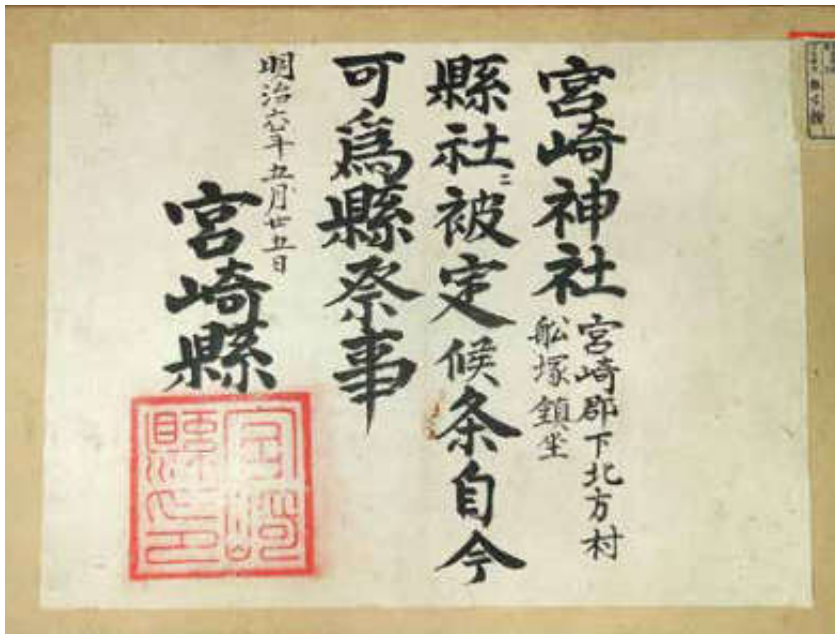 宮崎神社
宮崎郡下北方村
船塚鎮坐
縣社ニ被定候条自今
可爲縣祭事
明治六年五月廿五日
宮崎縣
宮崎
縣之印